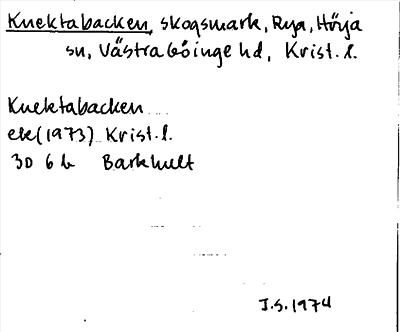 Knektabacken, skogsmark, Rya, Hörja
sn, Västra Göinge hd, Krist. l.
Knektabacken
ek (1973) Krist. l.
3D 6 b Barkhult
J.S. 1974